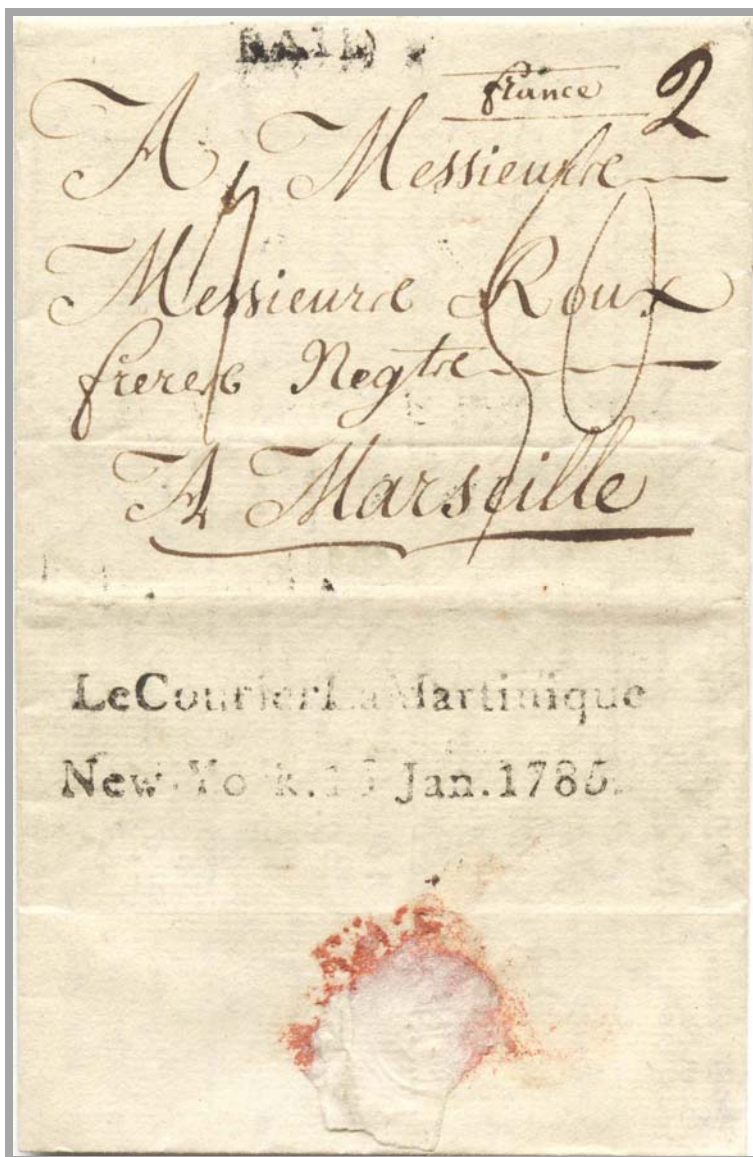 PAID
france 2
A Messieurs
Messieurs Roux
freres Negts
A Marseille
Le Courier La Martinique
New York. Jan. 1785.